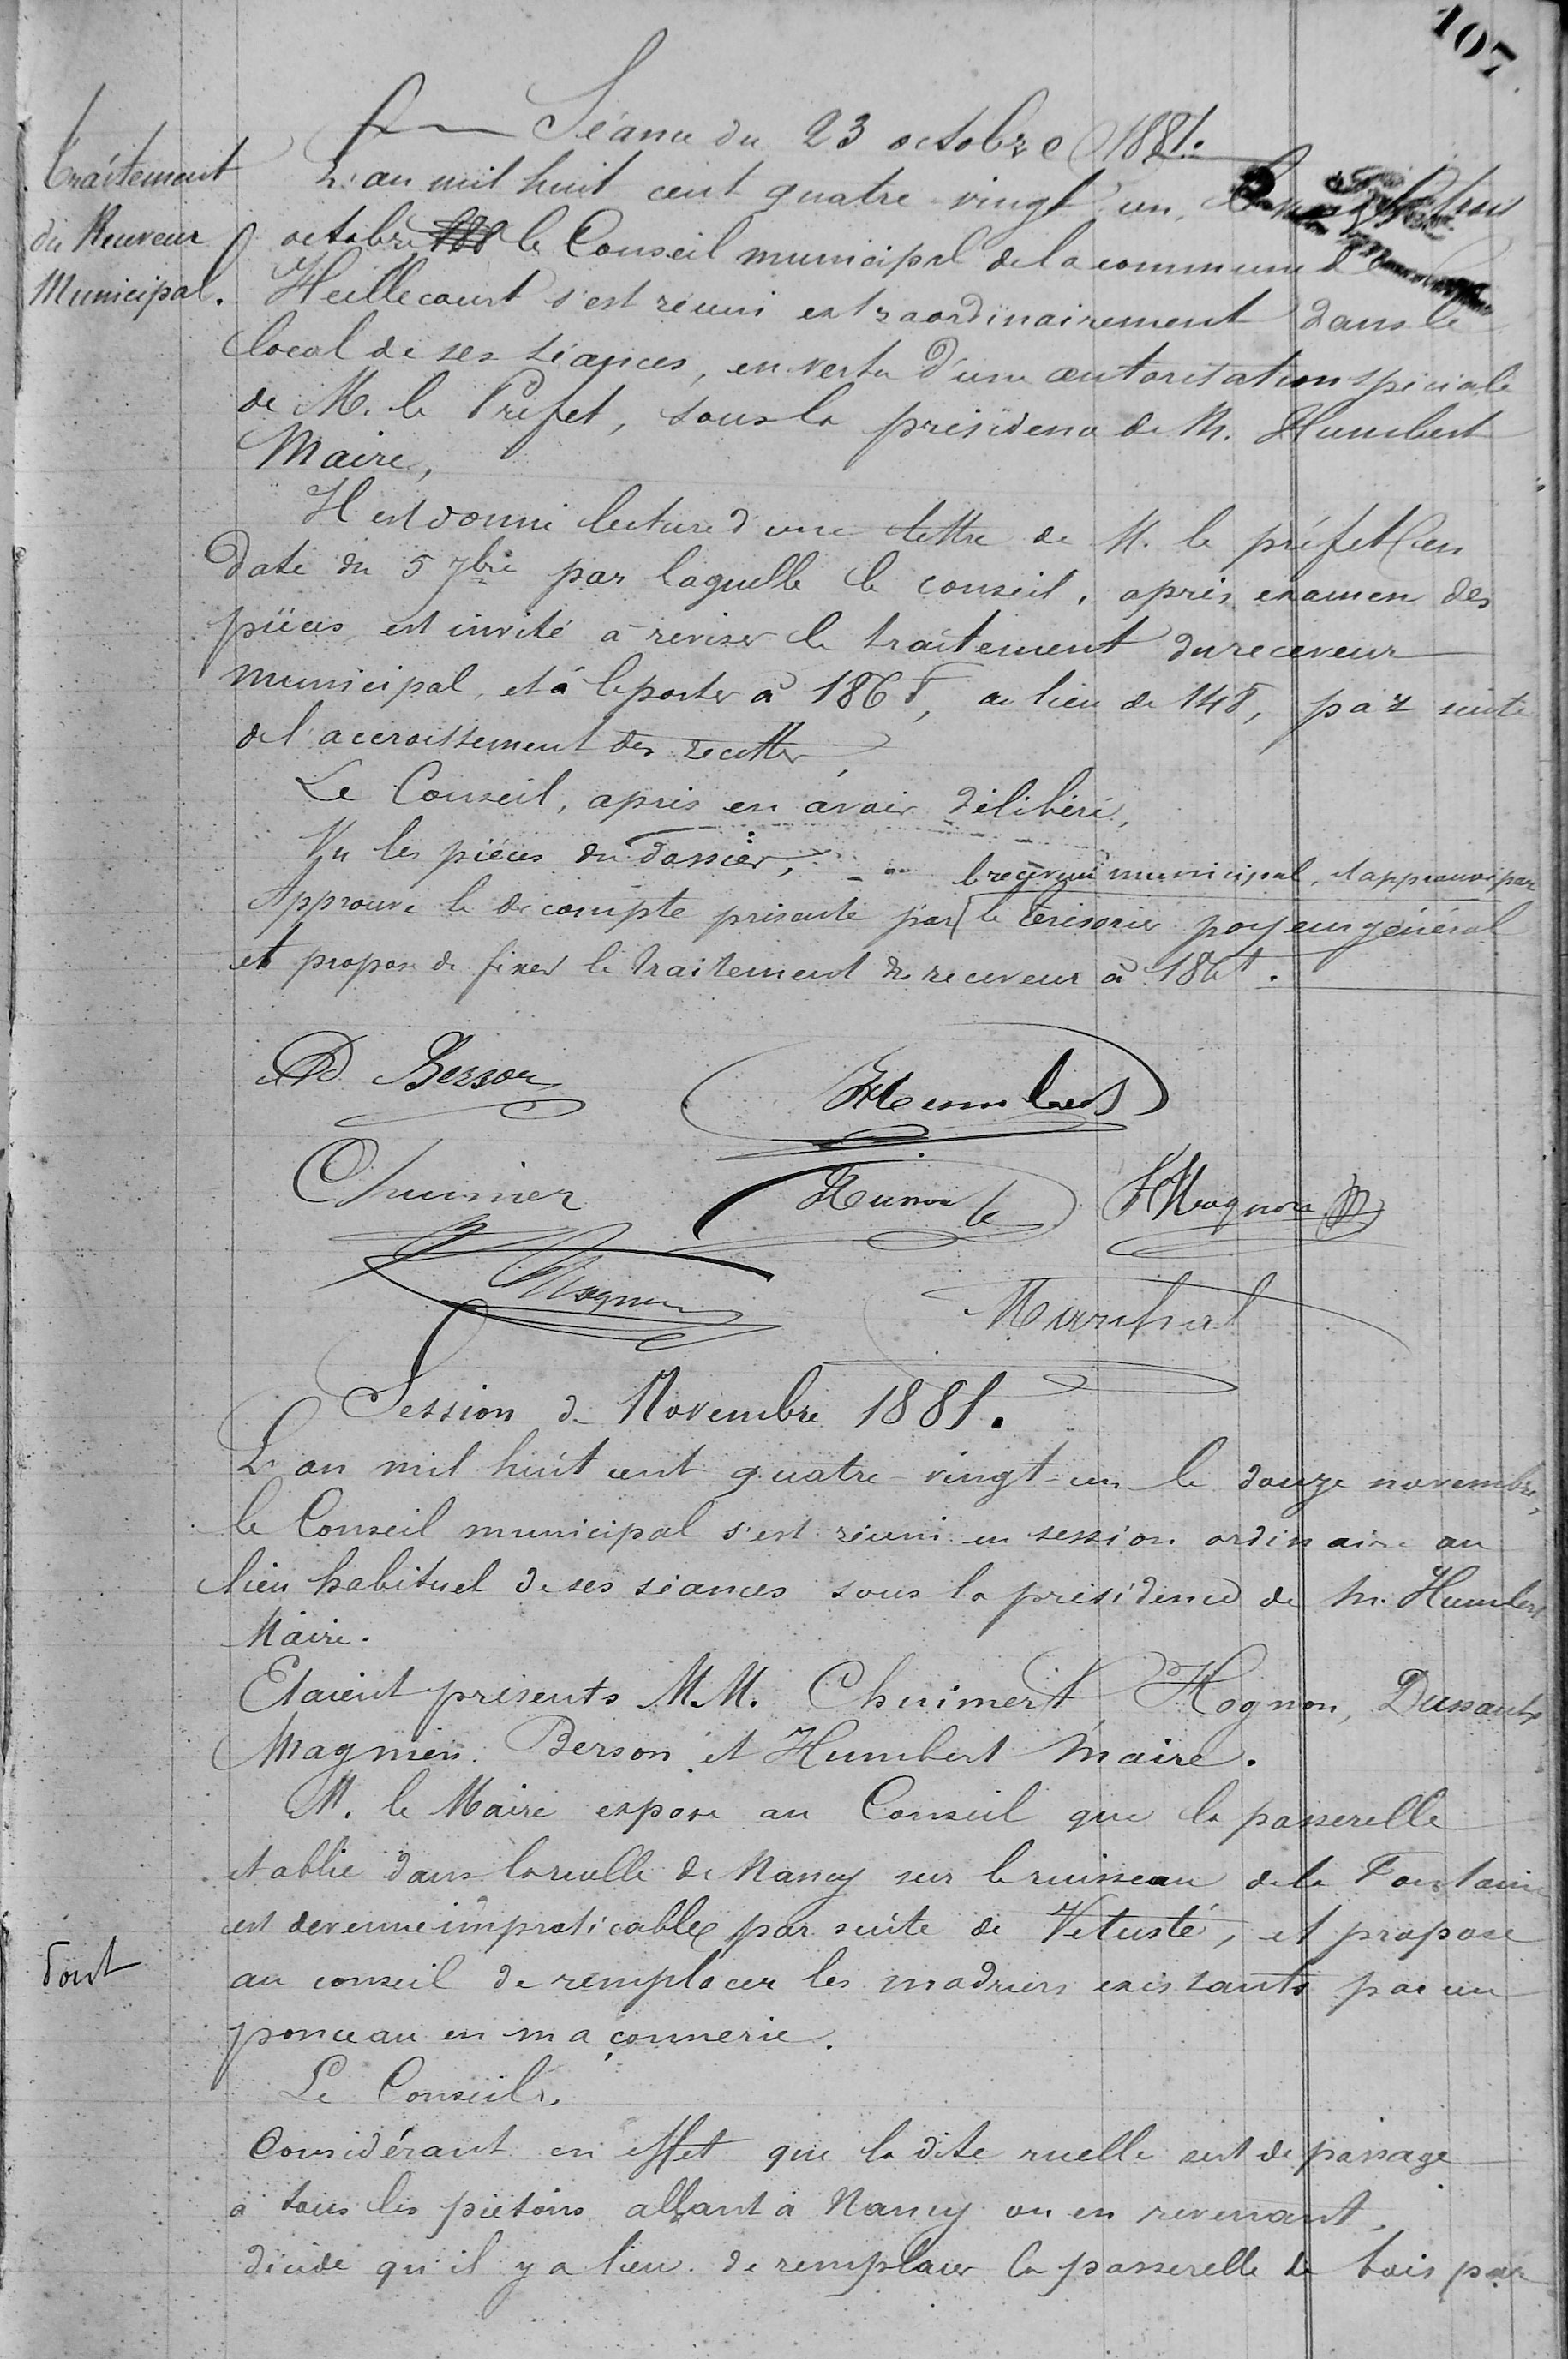 107
Séance du 23 octobre 1881.
Traitement
du Receveur
Municipal.
L'an mil huit cent quatre-vingt un, trois
octobre le Conseil municipal de la commune d
Heillecourt s'est réuni extraordinairement dans le
local de ses séances, en vertu d'une autorisation spéciale
de M. le Préfet, sous la présidence de M. Humbert
Maire,
Il est donné lecture d'une lettre de M. le préfet en
date du 5 7bre par laquelle le conseil, après examen des
pièces est invité à reviser le traitement du receveur
municipal, et à le porter à 186 f, au lieu de 148, par suite
de l'accroissement des recettes,
Le Conseil, après en avoir délibéré,
Vu les pièces du dossier,
le receveur municipal, et approuvé par
Approuve le décompte présenté par le trésorier payeur général
et propose de fixer le traitement du receveur à 186 f.
Ad Berson
Humbert
Chuimer
Humbert
Hognon
Magnien
Marchal
Session de Novembre 1881.
L'an mil huit cent quatre-vingt-un le douze novembre,
le Conseil municipal s'est réuni en session ordinaire au
lieu habituel de ses séances sous la présidence de M. Humbert
Maire.
Etaient présents M.M. Chuimert Hognon, Dussaulx
Magnien. Berson et Humbert Maire.
M. le Maire expose au Conseil que la passerelle
etablie dans la ruelle de Nancy sur le ruisseau de la Fontaine
est devenue impraticable par suite de Vetusté, et propose
Pont
au conseil de remplacer les madriers existants par un
ponceau en maçonnerie.
Le Conseil,
Considérant en effet que la dite ruelle sert de passage
à tous les piétons allant à Nancy ou en revenant,
décide qu'il y a lieu de remplacer la passerelle de bois par